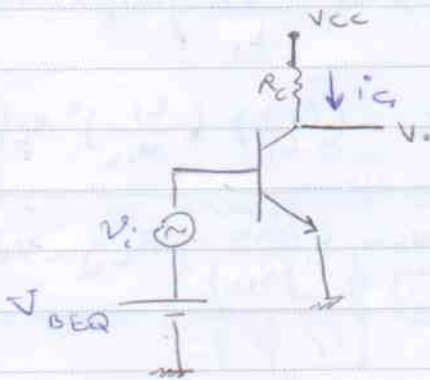 VCC
RC
iC
V.
vi
VBEQ